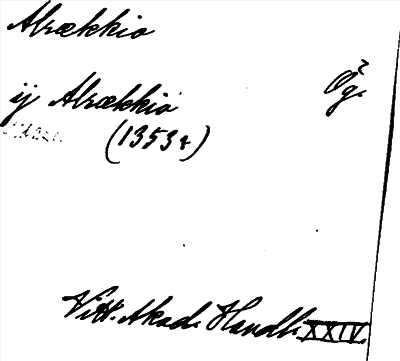 Alrækkio
ij Alrækkio Ög.
(1353 r)
Vitt. Akad. Handl. XXIV.